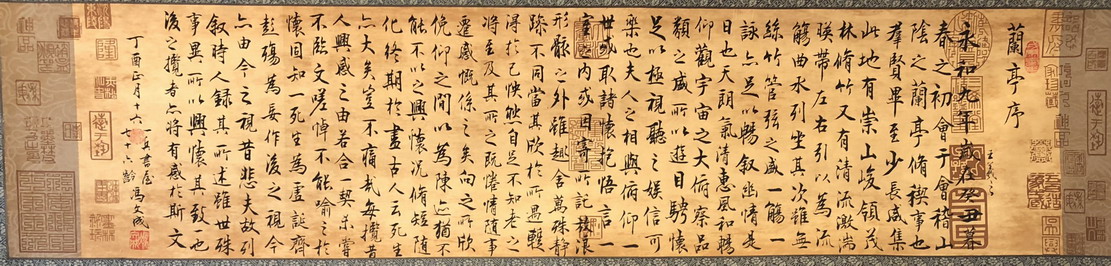 蘭亭序
王羲之
永和九年歲在癸丑暮
春之初會于會稽山
陰之蘭亭脩禊事也
羣賢畢至少長咸集
此地有崇山峻領茂
林脩竹又有清流激湍
暎帶左右引以為流
觴曲水列坐其次雖無
絲竹管弦之盛一觴一
詠亦足以暢叙幽情是
日也天朗氣清惠風和暢
仰觀宇宙之大俯察品
類之盛所以遊目騁懷
足以極視聽之娛信可
樂也夫人之相與俯仰一
世或取諸懷抱悟言一
室之内或因寄所託放浪
形骸之外雖趣舍萬殊静
躁不同當其欣於所遇輙
得於己怏然自足不知老之
將至及其所之既惓情隨事
遷感慨係之矣向之所欣
俛仰之間以為陳迹猶不
能不以之興懷況脩短隨
化終期於盡古人云死生
亦大矣豈不痛哉每攬昔
人興感之由若合一契未嘗
不臨文嗟悼不能喻之於
懷固知一死生為虛誕齊
彭殤為妄作後之視今
亦由今之視昔悲夫故列
叙時人錄其所述雖世殊
事異所以興懷其致一也
後之攬者亦將有感於斯文
丁酉正月十六
書屋七十六齡馮文